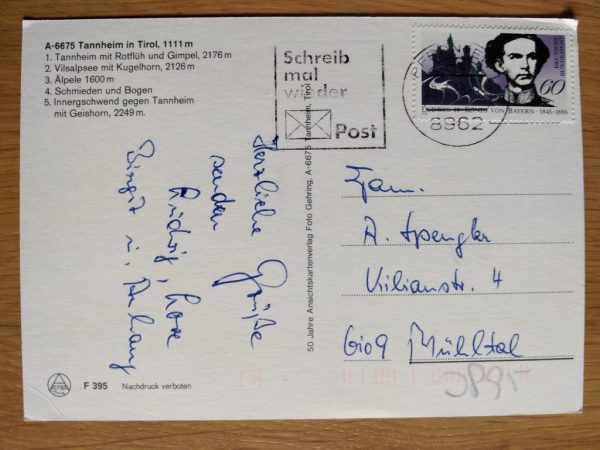 A-6675 Tannheim in Tirol, 1111 m
1. Tannheim mit Rotflüh und Gimpel, 2176 m
2. Vilsalpsee mit Kugelhorn, 2126 m
3. Älpele 1600 m
4. Schmieden und Bogen
5. Innergschwend gegen Tannheim
mit Geishorn, 2249 m.
Schreib
mal
wieder
Post
8962
DEUTSCHE
BUNDESPOST
60
LUDWIG II. KÖNIG VON BAYERN · 1845-1886
Herzliche Grüße
senden
Ludwig, Lore
Birgit u. Anhang
50 Jahre Ansichtskartenverlag Foto Gehring, A-6675 Tannheim, Tirol
Fam.
A. Spengler
Kilianstr. 4
6109 Mühltal
F 395 Nachdruck verboten